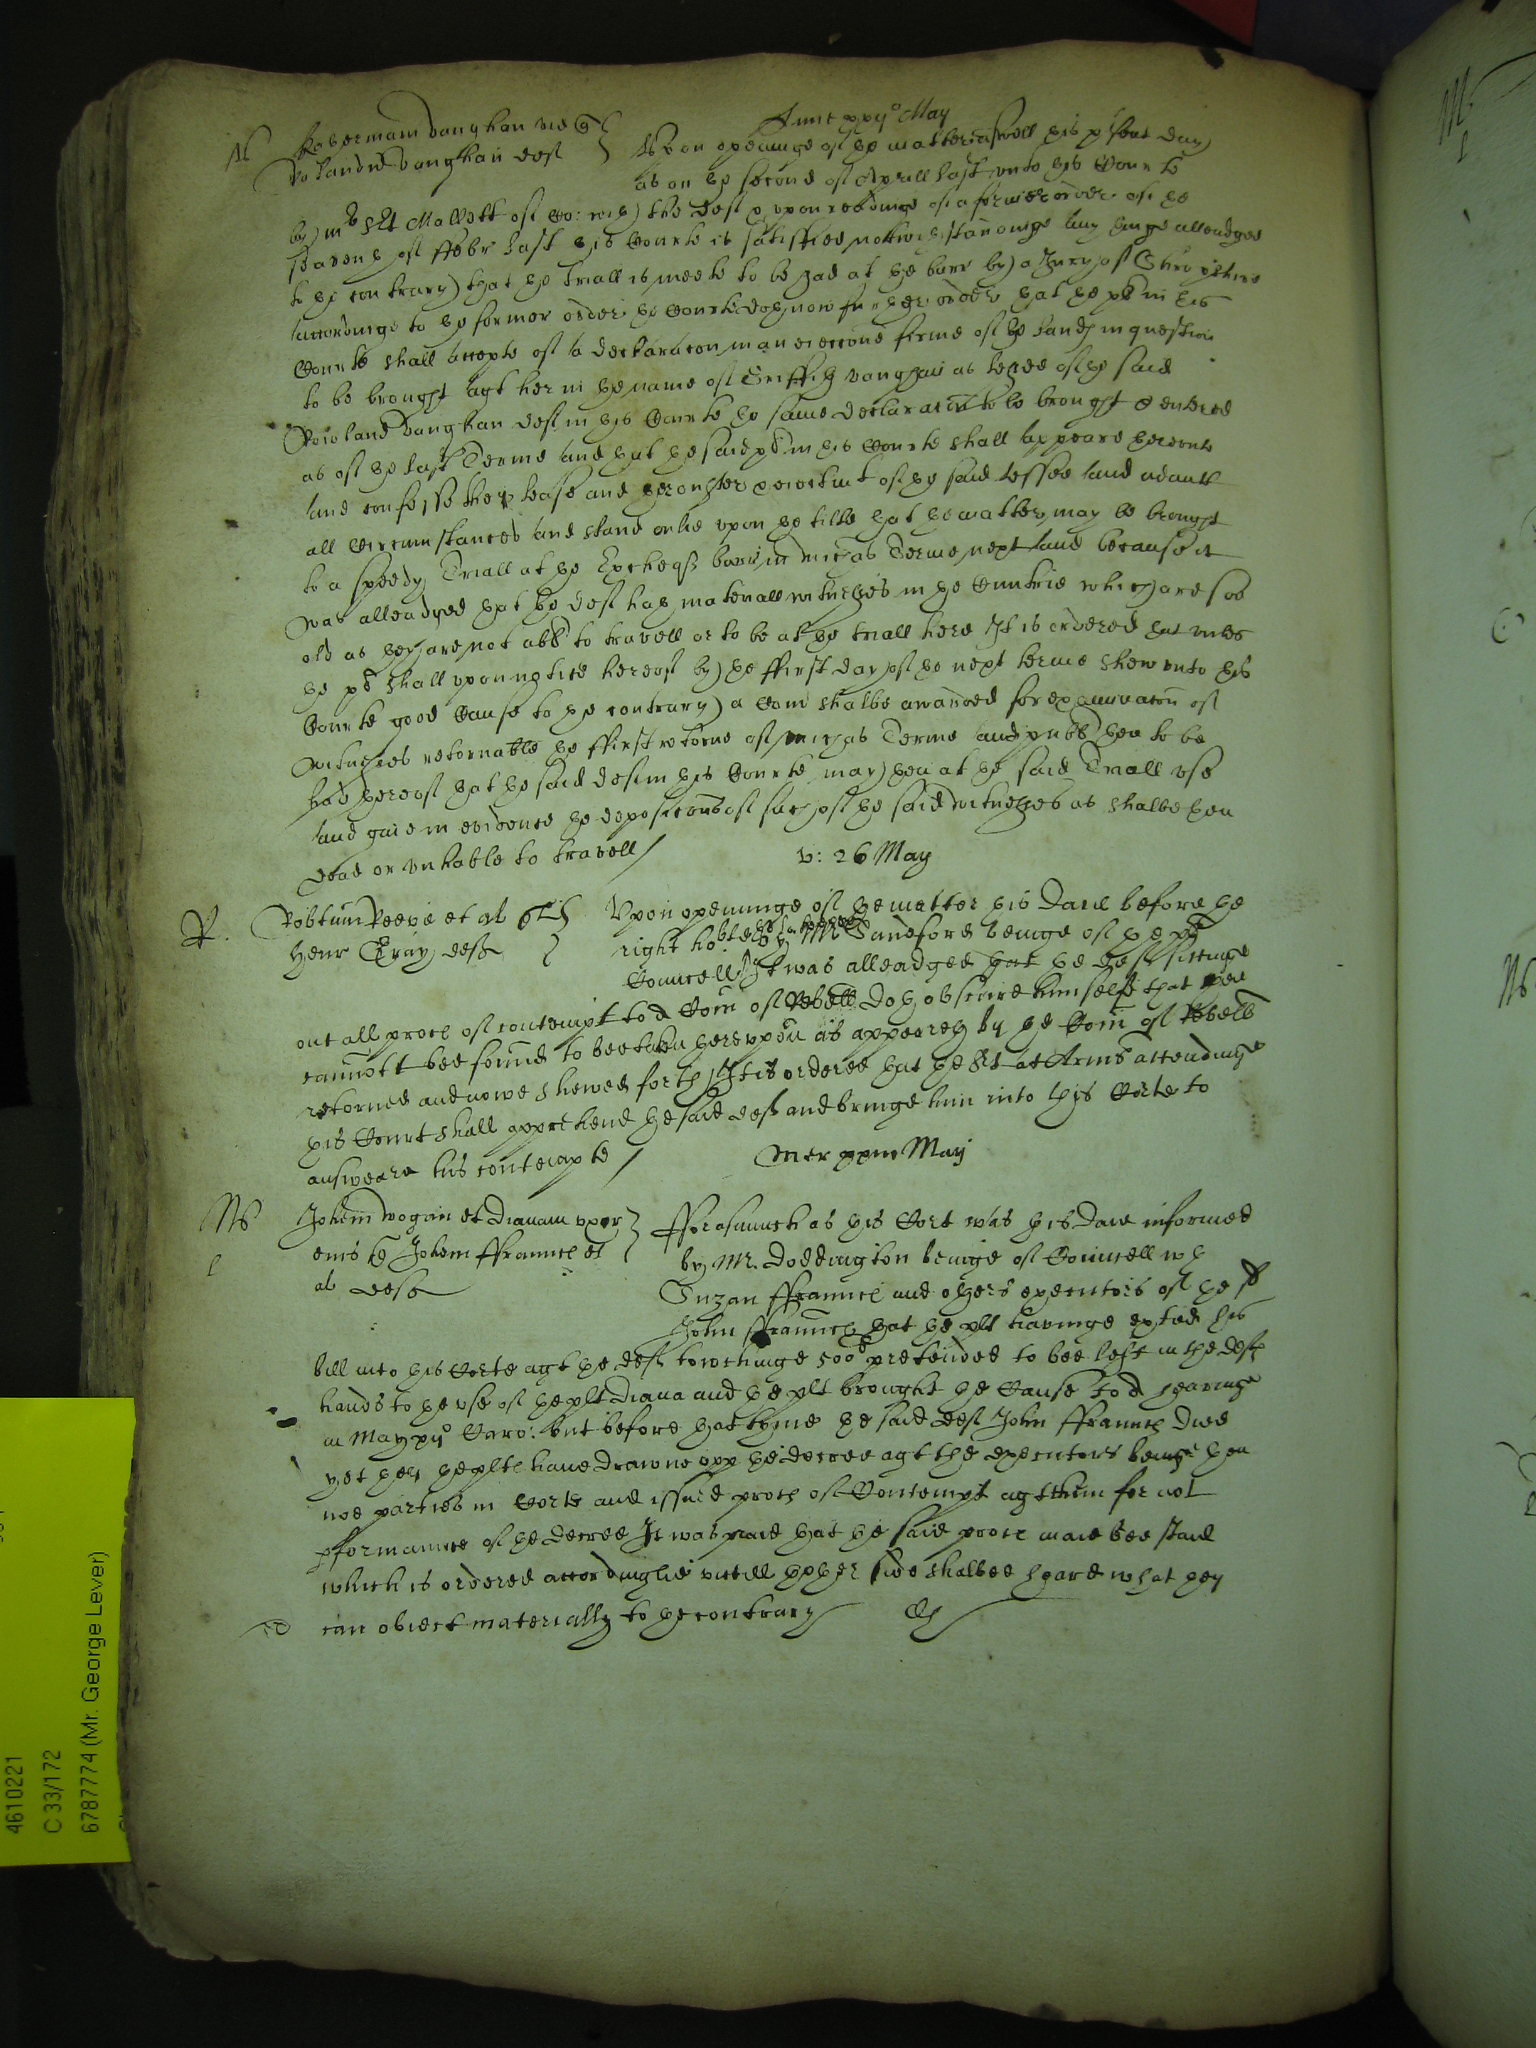 May
Vaughan
Rolandũ Vaughan def
Upon openinge of the matter aswell this psent day
as on the second of Aprill last unto this Courte
by Mr St Mallett of Co: wth the def & upon readinge of a former order of the
seaventh of ffebr last this Courte is satisfied notwthstandinge any thinge alleadged
to the contrary that the triall is meete to be had at the barr by a Jury of Shropshire
accordinge to the former order the Courte doth now further order that the plt in this
Courte shall accepte of a declaracon in an eieccone firme of the lands in question
to be brought agt her in the name of Griffith Vaughan as lessee of the said
Rowland Vaughan def in this Courte the same declaracon to be brought & entered
as of the last Terme and that the said plt in this Courte shall appeare thereunto
and confesse the lease and of the said lessee and
all Circumstances and stand onlie upon the title that the matter may be brought
to a speedy Triall at the Exchequer barr in Michas Terme next and because it
was alleadged that the def hath materiall witnesses in the Countrie which are soe
old as they are not able to travell or to be at the triall here It is ordered that unles
the plt shall upon notice hereof by the ffirst day of the next terme shew unto this
Courte good Cause to the contrary a Com shalbe awarded for examinacon of
witnesses retornable the ffirst retorne of Michas Terme and then to be
had thereof that the said def in this Courte may then at the said Triall use
and give in evidence the deposicons of such of the said witnesses as shalbe then
dead or unhable to travell / v: 26 May
R. Robtum Peepe et al
Henr Gray defs
Upon openinge of the matter this Daie before the
right hoble by Mr Sandford beinge of the plts
Councell It was alleadged that the def sittinge
out all proces of contempt to a Com of Rebell doth obscure himselfe that
cannott bee found to bee taken thereupon as appeareth by the Com of Rebell
retorned and nowe shewed forth It is ordered that the Srt at Arms attendinge
this Court shall apprehend the said def and bringe him into this Corte to
answeare his contempte / Mer May
Johem Wogan et Dianam uxor
eius Johem ffraunch et
al defs
fforasmuch as this Cort was this Daie informed
by Mr. Doddington beinge of Councell wth
Suzan ffraunch and others executors of the sd
John ffraunch that the plt havinge exhted his
bill into this Corte agt the def towchinge 500 pretended to bee left in the defs
hands to the use of the plt Diana and the plt brought the Cause to a hearinge
in May Caro: but before that tyme the said def John ffraunch died
yet they the plts have drawne upp the decree agt the executors beinge then
noe parties in Corte and issued proces of Contempt agt them for not
pformaunce of the decree It was praied that the said proces maie bee staid
which is ordered accordinglie untill thother side shalbee heard what they
can obiect materially to the contrary
4610221
C 33/172
6787774 (Mr. George Lever)